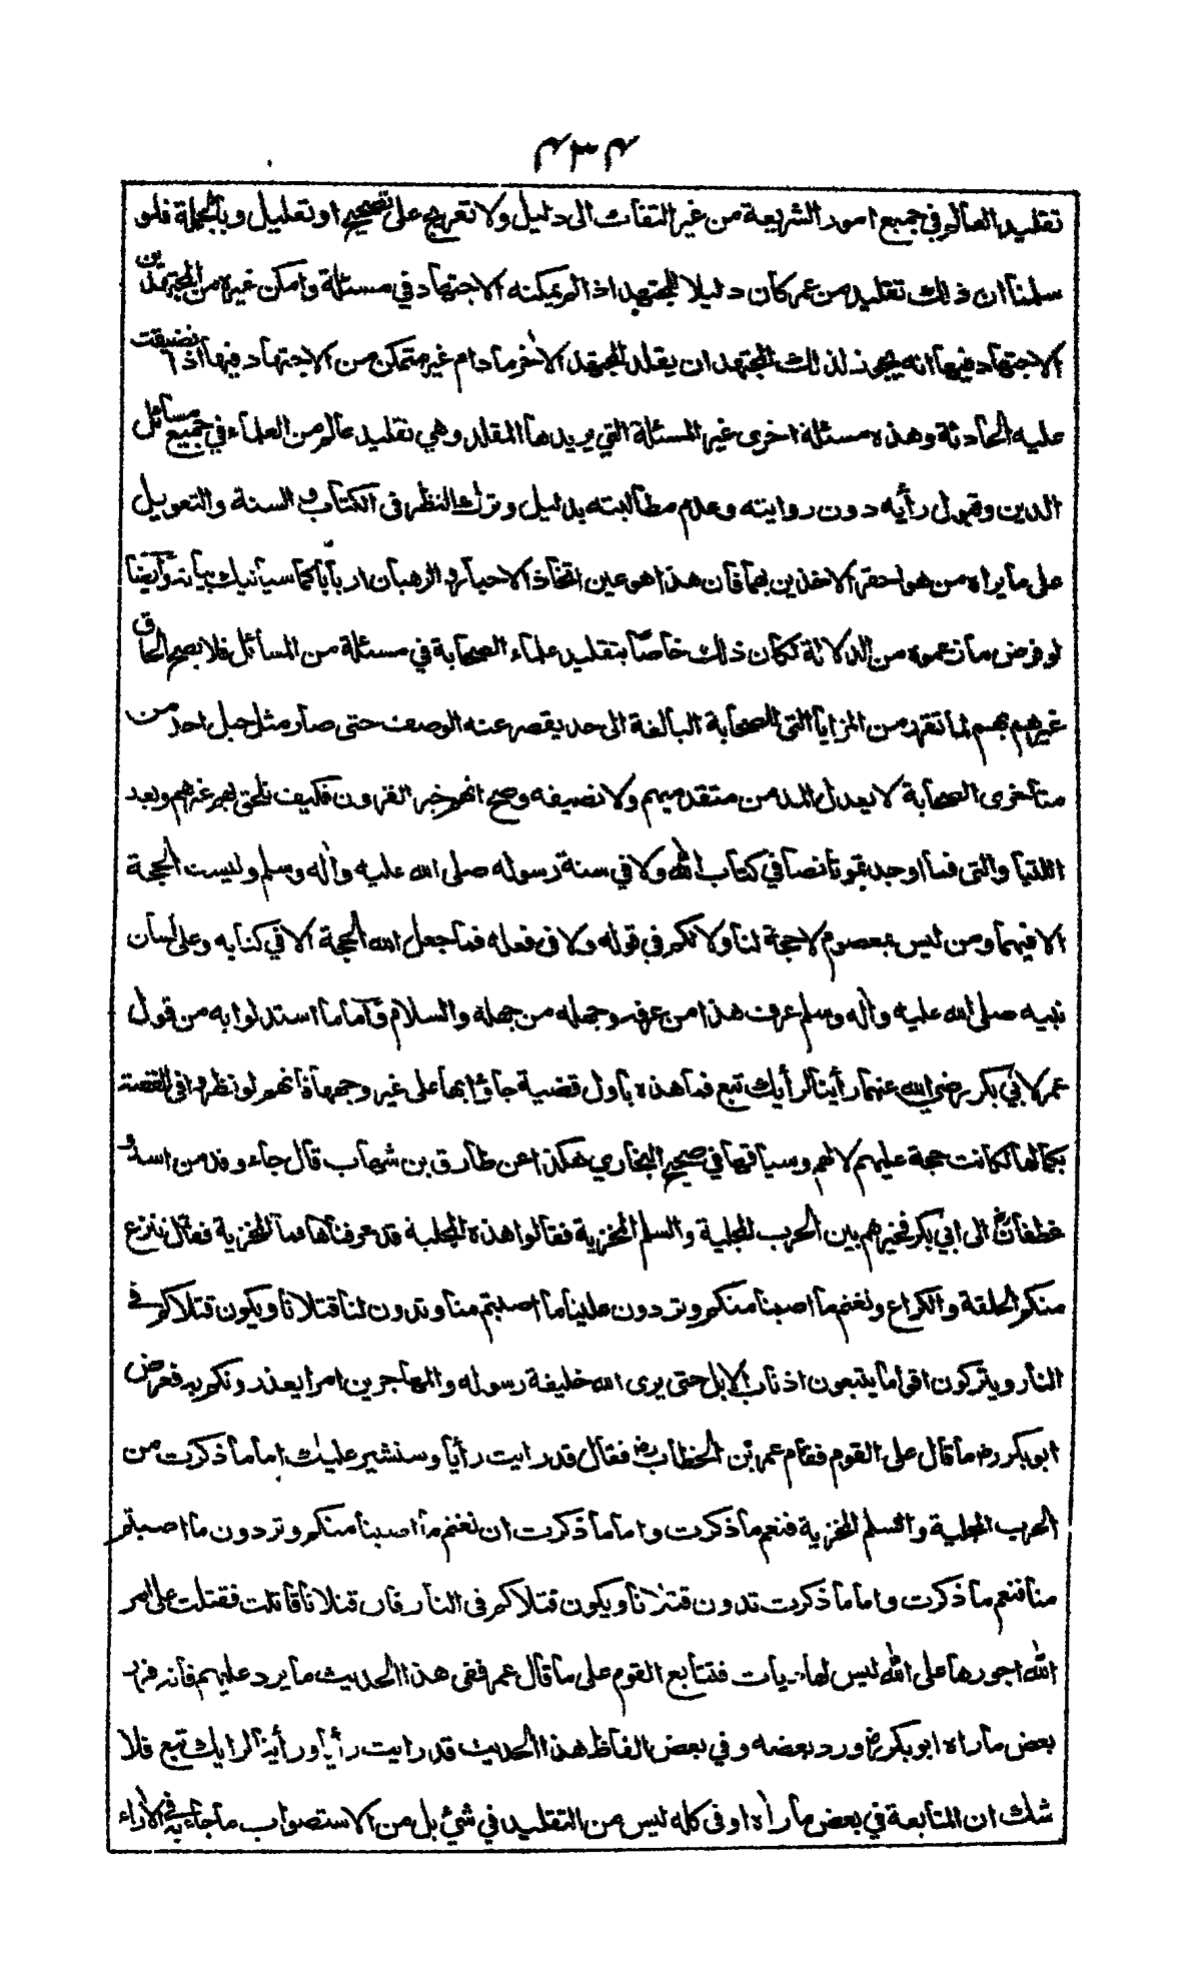 ٤٣٤
تقليد العالم في جميع امور الشريعة من غير التفات الى دليل ولا تعريج على تصحيح او تعليل وبالجملة فلو
سلمنا ان ذلك تقليد من عمر كان دليلا لمجتهد اذا لم يمكنه الاجتهاد في مسئلة وامكن غيره من المجتهدين
الاجتهاد فيها انه يجوز لذلك المجتهد ان يقلد المجتهد الآخر ما دام غير متمكن من الاجتهاد فيها اذا تضيقت
عليه الحادثة وهذه مسئلة اخرى غير المسئلة التي يريدها المقلد وهي تقليد عالم من العلماء في جميع مسائل
الدين وقبول رأيه دون روايته وعدم مطالبته بدليل وترك النظر في الكتاب والسنة والتعويل
على ما يراه من هو احقر الآخذين بهما فان هذا هو عين اتخاذ الاحبار والرهبان اربابا كما سيأتيك بيانه وايضا
لو فرض ما زعموه من الدلالة لكان ذلك خاصا بتقليد علماء الصحابة في مسئلة من المسائل فلا يصح الحاق
غيرهم بهم لما تقرر من المزايا التي للصحابة البالغة الى حد يقصر عنه الوصف حتى صار مثل جبل احد من
متأخري الصحابة لا يعدل المد من متقدميهم ولا نصيفه وصح انهم خير القرون فكيف نلحق بهم غيرهم وبعد
اللتيا والتي فما اوجدتمونا نصا في كتاب الله ولا في سنة رسوله صلى الله عليه وآله وسلم وليست الحجة
الا فيهما ومن ليس بمعصوم لا حجة لنا ولا لكم في قوله ولا في فعله فما جعل الله الحجة الا في كتابه وعلى لسان
نبيه صلى الله عليه وآله وسلم عرف هذا من عرفه وجهله من جهله والسلام وآما ما استدلوا به من قول
عمر لابي بكر رضي الله عنهما رأينا لرأيك تبع فما هذه باول قضية جاؤا بها على غير وجهها فانهم لو نظروا في القصة
بكمالها لكانت حجة عليهم لا لهم وسياقها في صحيح البخاري هكذا عن طارق بن شهاب قال جاء وفد من اسد و
غطفان الى ابي بكر فخيرهم بين الحرب المجلية والسلم المخزية فقالوا هذه المجلية قد عرفناها فما المخزية فقال ننزع
منكم الحلقة والكراع ونغنم ما اصبنا منكم وتردون علينا ما اصبتم منا وتدون لنا قتلانا ويكون قتلاكم في
النار ويتركون اقواما يتبعون اذناب الابل حتى يرى الله خليفة رسوله والمهاجرين امرا يعذرونكم به فعرض
ابو بكر رض ما قال على القوم فقام عمر بن الخطاب رض فقال قد رايت رأيا وسنشير عليك اما ما ذكرت من
الحرب المجلية والسلم المخزية فنعم ما ذكرت واما ما ذكرت ان نغنم ما اصبنا منكم وتردون ما اصبتم
منا فنعم ما ذكرت واما ما ذكرت تدون قتلانا ويكون قتلاكم في النار فان قتلانا قاتلت فقتلت على امر
الله اجورها على الله ليس لها ديات فتتابع القوم على ما قال عمر ففي هذا الحديث ما يرد عليهم فانه قرر
بعض ما راه ابو بكر رض ورد بعضه وفي بعض الفاظ هذا الحديث قد رايت رأيا ورأينا لرايك تبع فلا
شك ان المتابعة في بعض ما رأه او في كله ليس من التقليد في شئ بل من الاستصواب ما جاء به في الآراء